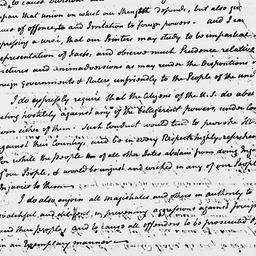 upon that union on which our Strength depends, but also give
cause of offence, and Irritation to foreign powers. And I can
expressing a wish, that our Printers may study to be impartial
representation of facts, and observe much Prudence relative
and animadversions as may render the Dispositions of
Foreign Governments & Rulers unfriendly to the People of the
I do expressly require that the Citizens of the U.S. do abs
acting hostilely against any of the belligerent powers, under Com
from either of them. Such conduct would tend to provoke
against their Country, and be in every Respect highly reprehen
while the people of all other States abstain from doing Injury
of our People, it would be unjust and wicked in any of our People
Injuries to them
I do also enjoin all magistrates and others in authority to
watchful, and diligent in preventing aggressions against foreign
and their people, and to cause all offenders to be prosecuted
in an Exemplary manner